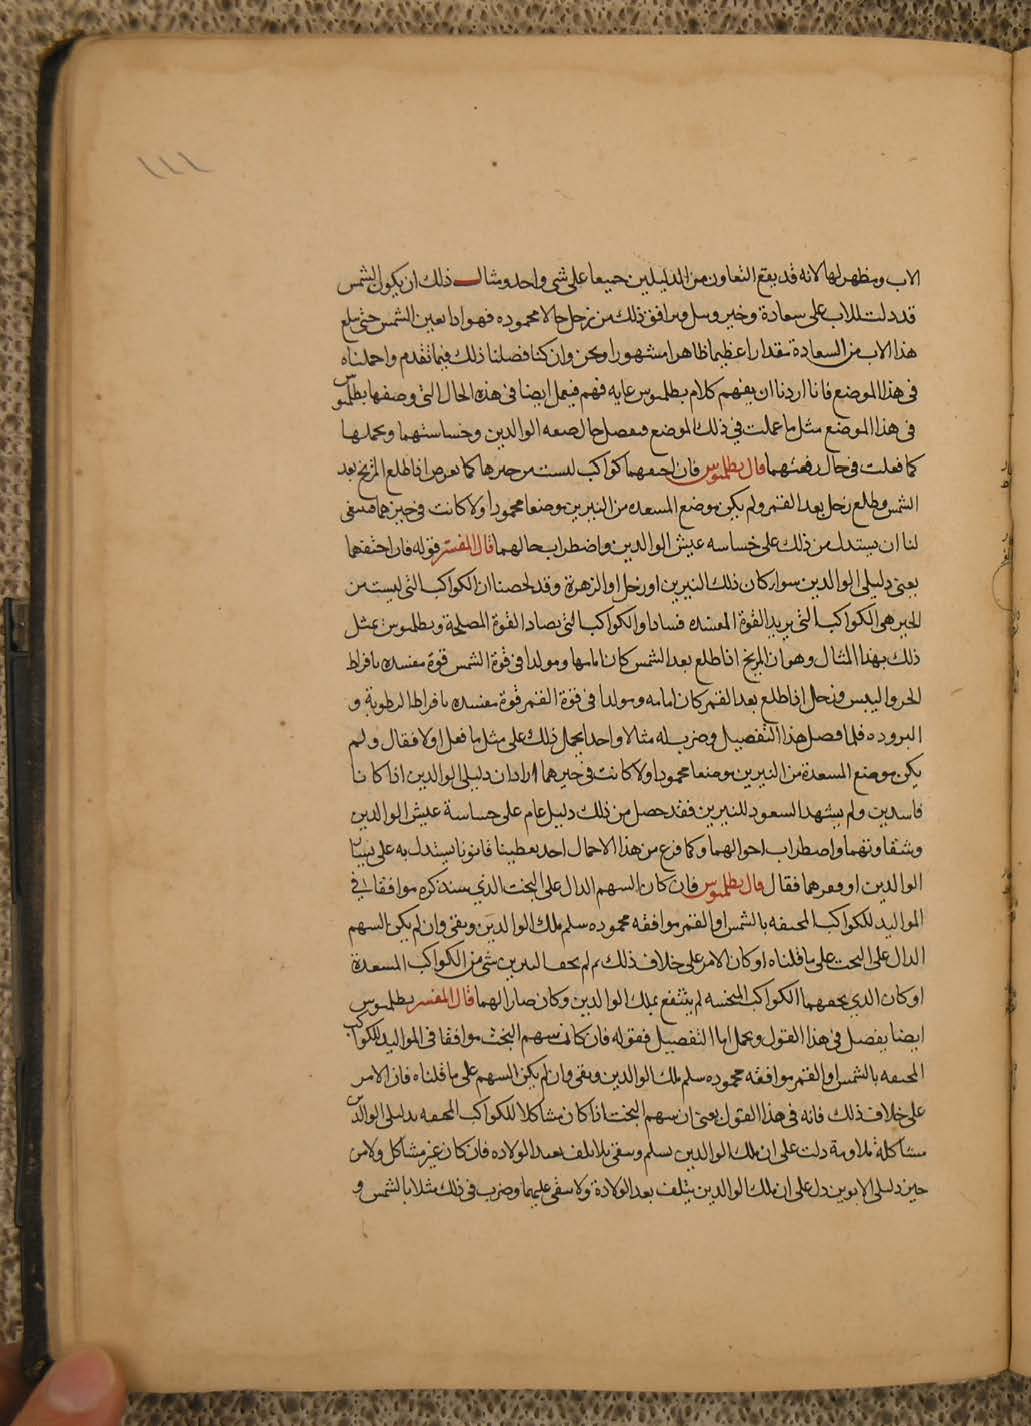 ١١١
الاب ومظهر لها لانه قد يقع التعاون من الدليلين جميعا على شى واحد ومثال ذلك ان يكون الشمس
قد دلت للاب على سعادة وخير وسل ومرافق ذلك من زحل حالا محموده فهو اذا يعين الشمس حتى سلع
هذا الاب من السعادة مقدارا عظيما ظاهرا مشهورا ونحن وان كنا فصلنا ذلك فيما تقدم واجملناه
فى هذا الموضع فانا اردنا ان يفهم كلام بطلميوس غايه فهم فيعمل ايضا فى هذه الحال التى وصفها بطلميوس
فى هذا الموضع مثل ما عملت فى ذلك الموضع فيفصل حال ضعه الوالدين وخساستهما ويجملها
كما فعلت فى حال رفعتهما قال بطلميوس فان احتفهما كواكب ليست من حيزها كما يعرض اذا طلع المريخ بعد
الشمس وطلع زحل بعد القمر ولم يكن موضع المسعده من النيرين موضعا محمودا ولا كانت فى حيزهما فينبغى
لنا ان يستدل من ذلك على خساسه عيش الوالدين واضطراب حالهما قال المفسر قوله فان احتفهما
يعنى دليلى الوالدين سوا كان ذلك النيرين او زحل او الزهرة وقد لخصنا ان الكواكب التى ليست من
الحيز هى الكواكب التى يزيد القوة المفسده فسادا والكواكب التى يضاد القوة المصلحة وبطلميوس يمثل
ذلك بهذا المثال وهو ان المريخ اذا طلع بعد الشمس كان امامها ومولدا فى قوة الشمس قوة مفسده بافراط
الحر واليبس وزحل اذا طلع بعد القمر كان امامه ومولدا فى قوة القمر قوة مفسده بافراط الرطوبة و
البروده فلما فصل هذا التفصيل وضرب له مثالا واحدا يجمل ذلك على مثل ما فعل اولا فقال ولم
يكن موضع المسعدة من النيرين موضعا محمودا ولا كانت فى حيزهما اراد ان دليلى الوالدين اذا كانا
فاسدين ولم يشهد السعود للنيرين فقد حصل من ذلك دليل عام على خساسة عيش الوالدين
وشقاوتهما واضطراب احوالهما وكما فرغ من هذا الاجمال احد يعطينا قانونا يستدل به على
الوالدين او فقرهما فقال قال بطلميوس فان كان السهم الدال على البخت الذى سنذكره موافقا فى
المواليد للكواكب المحتفه بالشمس او القمر موافقه محموده سلم ملك الوالدين وبقى وان لم يكن السهم
الدال على البخت على ما قلناه او كان الامر على خلاف ذلك لم يحف النيرين شى من الكواكب المسعدة
او كان الذى يحفهما الكواكب المنحسه لم ينتفع بملك الوالدين وكان ضارا لهما قال المفسر بطلميوس
ايضا يفصل فى هذا القول ويجمل اما التفصيل فقوله فان كان سهم البخت موافقا فى المواليد للكواكب
المحتفه بالشمس او القمر موافقه محموده سلم ملك الوالدين وبقى وان لم يكن السهم على ما قلناه فان الامر
على خلاف ذلك فانه فى هذا القول يعنى ان سهم البخت اذا كان مشاكلا للكواكب المحتفه بدليلى الوالدين
مشاكلة ملاومة دلت على ان ملك الوالدين يسلم وسقى بلا تلف بعد الولاده فان كان غير مشاكل ولا من
حيز دليلى الابوين دل على ان ملك الوالدين يتلف بعد الولادة ولا يبقى عليهما وضرب فى ذلك مثلا بالشمس و